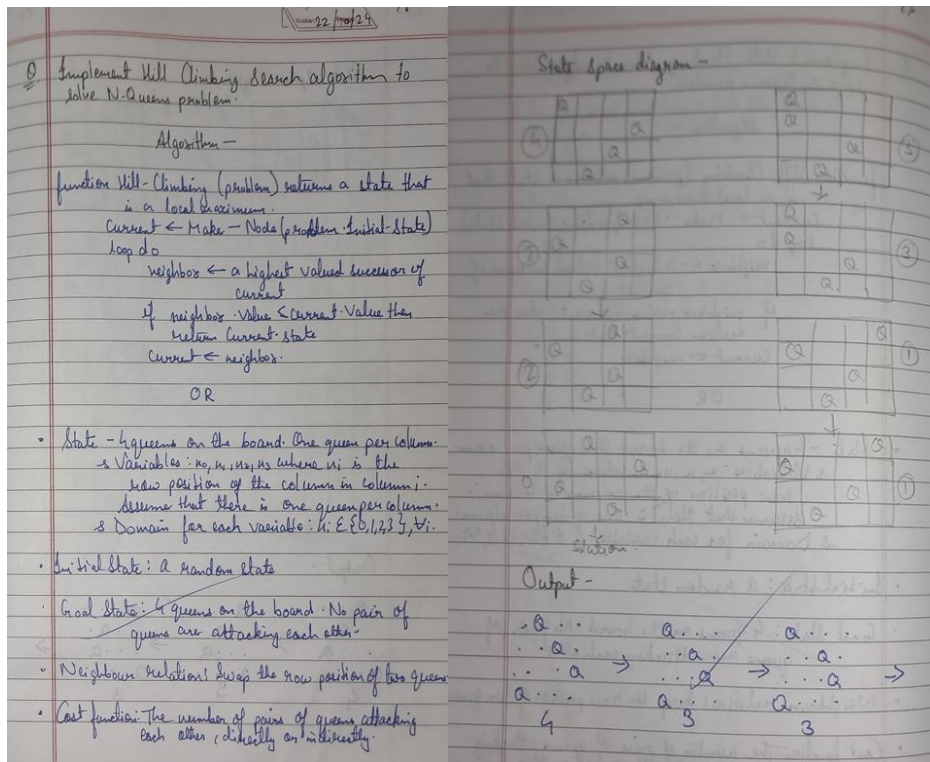 Date: 22/10/24
Q Implement Hill Climbing search algorithm to
solve N-Queens problem.
Algorithm -
function Hill-Climbing (problem) returns a state that
is a local maximum.
Current ← Make - Node (problem. Initial-State)
loop do
neighbor ← a highest valued successor of
current
if neighbor. Value ≤ current. Value then
return Current. state
Current ← neighbor.
OR
• State - 4 queens on the board. One queen per column.
Variables : x0, x1, x2, x3 where xi is the
row position of the column in column i.
Assume that there is one queen per column.
Domain for each variable : xi ∈ {0,1,2,3}, ∀i.
• Initial State : a random state
• Goal State : 4 queens on the board. No pair of
queens are attacking each other.
• Neighbour relation : Swap the row position of two queens
• Cost function : The number of pairs of queens attacking
each other, directly or indirectly.
State Space diagram -
4
Q
Q
Q
Q
2
Q
Q
Q
Q
2
Q
Q
Q
Q
0
Q
Q
Q
Q
Solution
Q
Q
Q
Q
Q
Q
Q
Q
3
Q
Q
Q
Q
1
Q
Q
Q
Q
1
Output -
. Q . . Q . . . Q . . .
. . Q . . . Q . . . Q .
. . . Q → . . . Q → . . . Q →
Q . . . Q . . . Q . . .
4 3 3